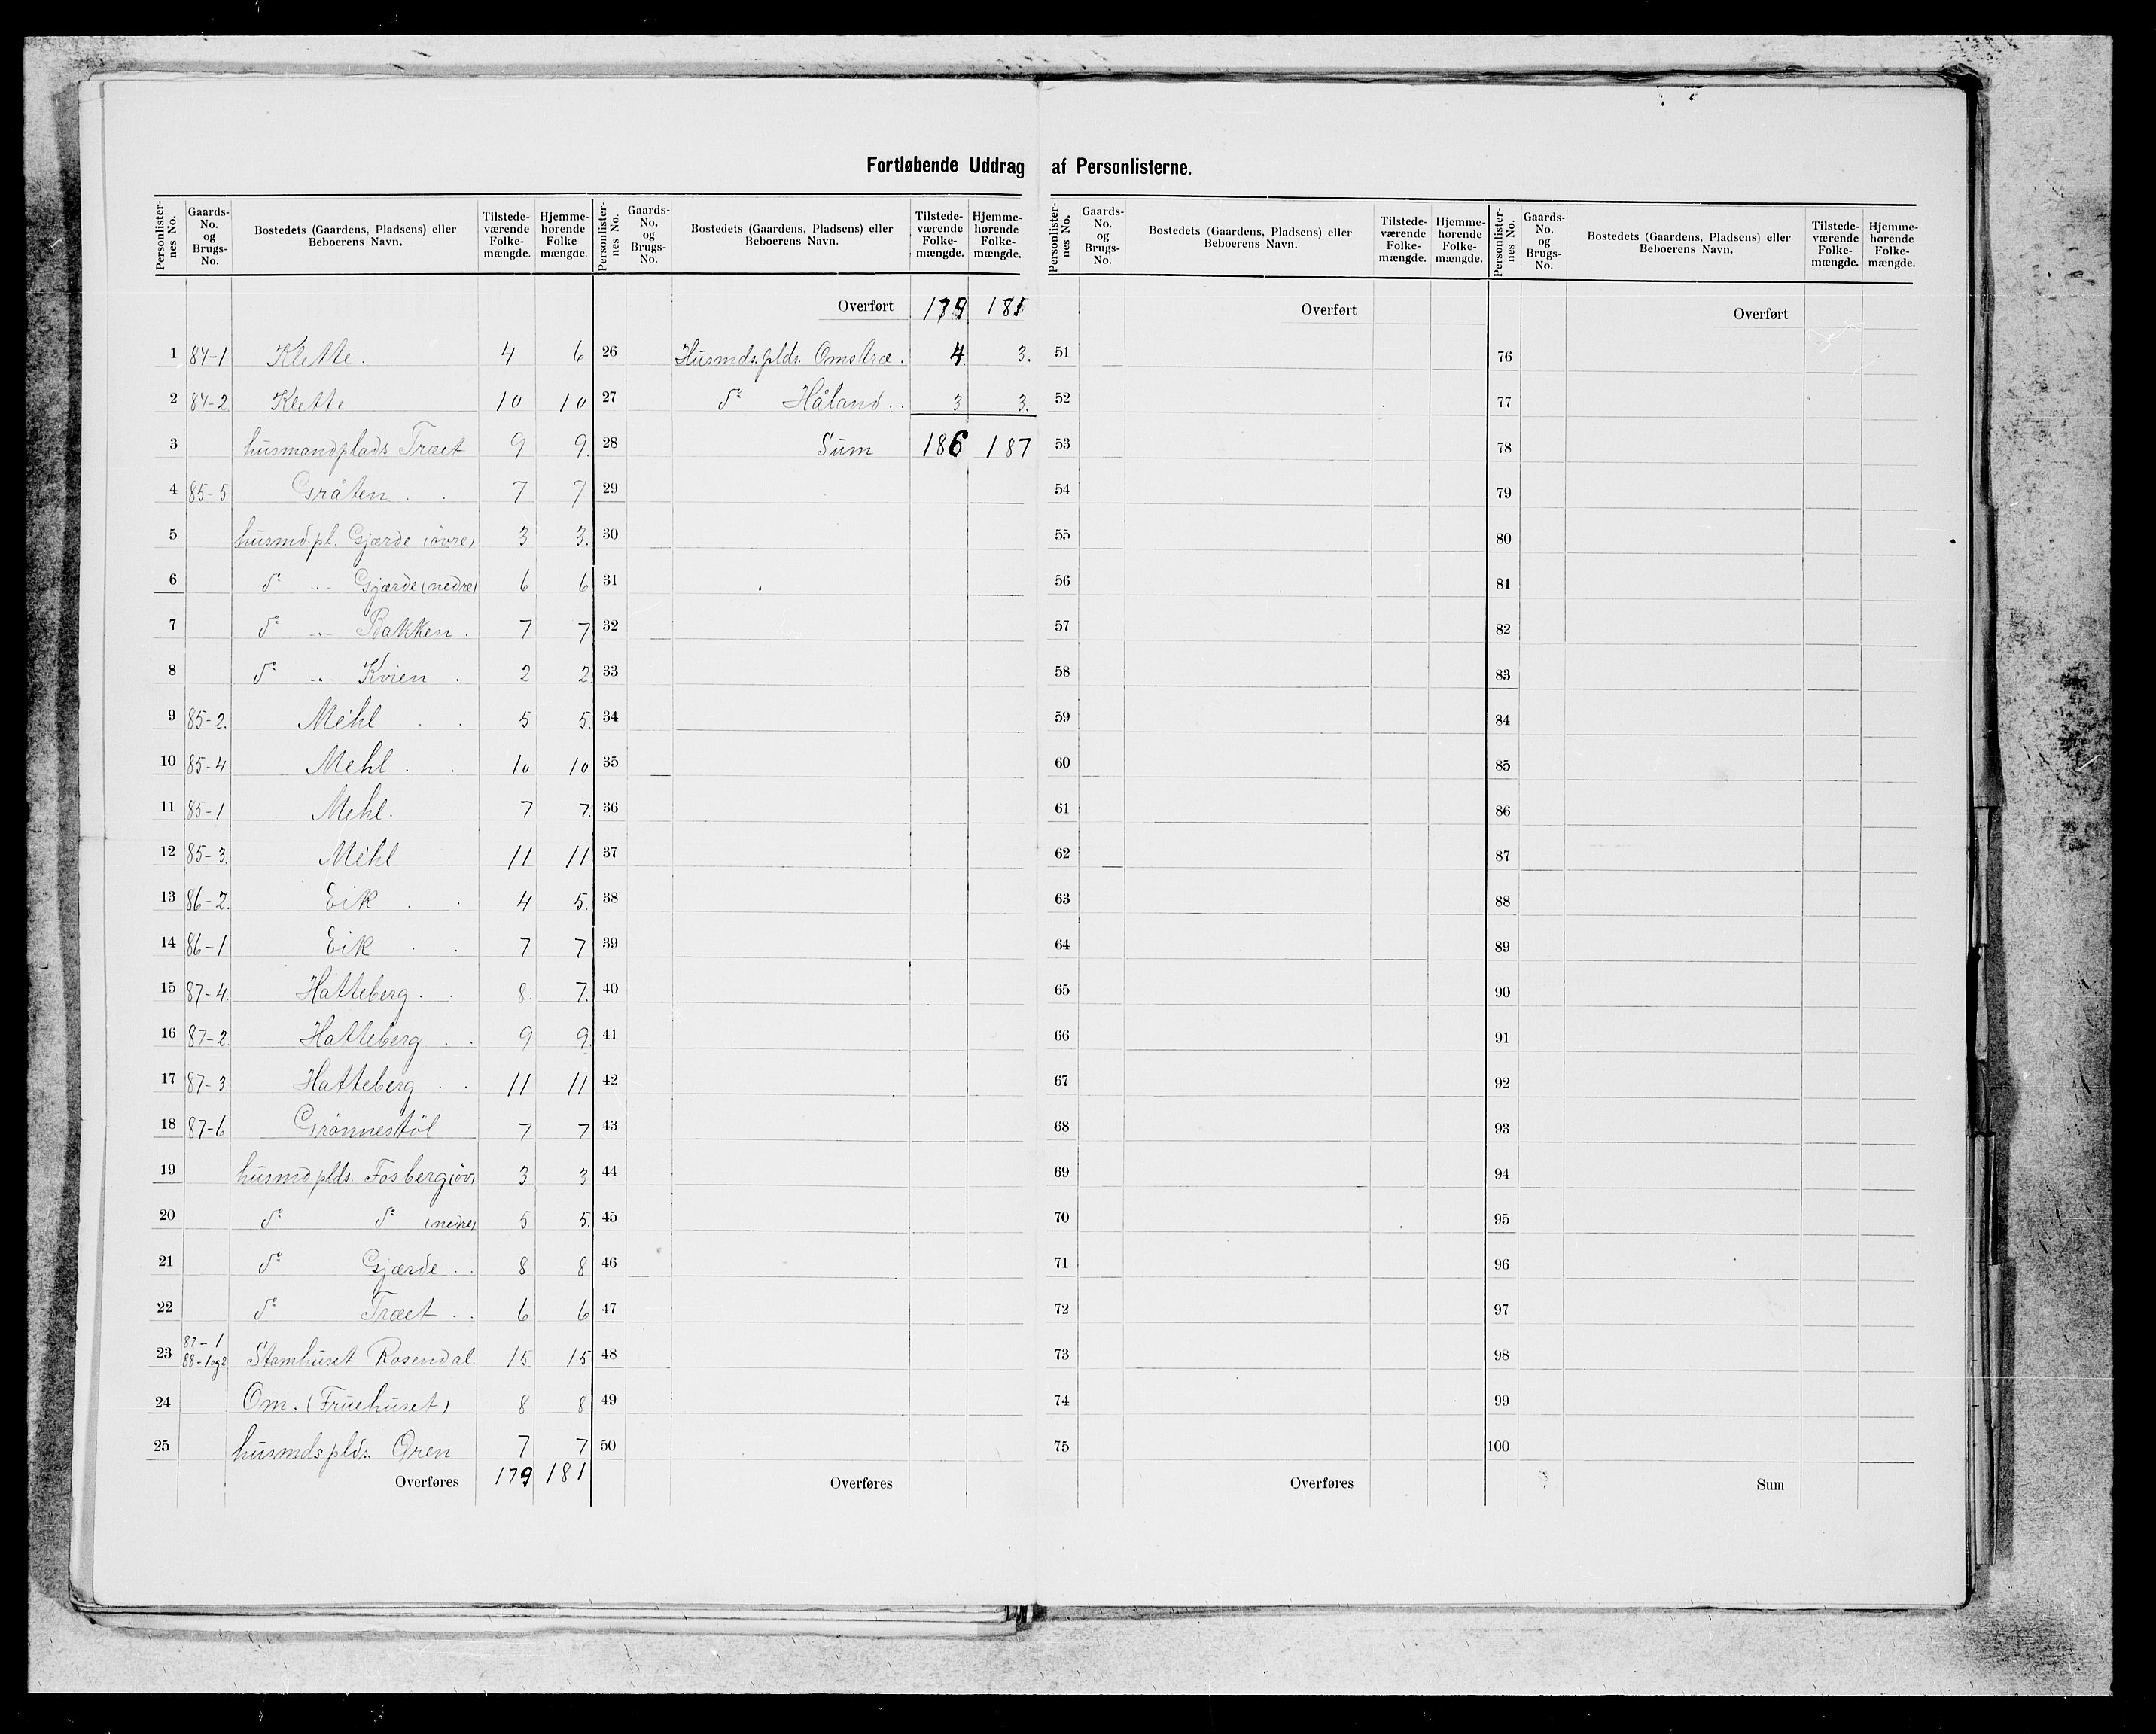 Fortløbende Uddrag af Personlisterne.
Personlisternes No. | Gaards-No. og Brugs-No. | Bostedets (Gaardens, Pladsens) eller Beboerens Navn. | Tilstedeværende Folkemængde. | Hjemmehørende Folkemængde.
1 84-1 Klette. 4 6
2 84-2 Klette 10 10
3 husmandplads Træet 9 9.
4 85-5 Gråten . . 7 7
5 husmd.pl. Gjærde (øvre) 3 3.
6 do " Gjærde (nedre) 6 6
7 do " Bakken . 7 7
8 do " Kvien . 2 2
9 85-2. Mehl . . 5 5.
10 85-4 Mehl . . 10 10
11 85-1 Mehl. 7 7.
12 85-3. Mehl 11 11
13 86-2. Eik . . 4 5.
14 86-1 Eik . . 7 7
15 87-4. Hatteberg . . 8. 7.
16 87-2. Hatteberg . . 9 9.
17 87-3. Hatteberg . . 11 11
18 87-6 Grønnestøl 7 7
19 husmd.plds. Fosberg (øv) 3 3
20 do do (nedre) 5 5.
21 do Gjærde . . 8 8
22 do Træet . . 6 6
23 87-1 88-1og2 Stamhuset Rosendal. 15 15
24 Om. (Fruehuset) 8 8
25 husmds plds. Øren 7 7
Overføres 179 181
Personlisternes No. | Gaards-No. og Brugs-No. | Bostedets (Gaardens, Pladsens) eller Beboerens Navn. | Tilstedeværende Folkemængde. | Hjemmehørende Folkemængde.
Overført 179 181
26 Husmds.plds. Omstræ . 4. 3.
27 do Håland . . 3 3.
28 Sum 186 187
29
30
31
32
33
34
35
36
37
38
39
40
41
42
43
44
45
46
47
48
49
50
Overføres
Personlisternes No. | Gaards-No. og Brugs-No. | Bostedets (Gaardens, Pladsens) eller Beboerens Navn. | Tilstedeværende Folkemængde. | Hjemmehørende Folkemængde.
Overført
51
52
53
54
55
56
57
58
59
60
61
62
63
64
65
66
67
68
69
70
71
72
73
74
75
Overføres
Personlisternes No. | Gaards-No. og Brugs-No. | Bostedets (Gaardens, Pladsens) eller Beboerens Navn. | Tilstedeværende Folkemængde. | Hjemmehørende Folkemængde.
Overført
76
77
78
79
80
81
82
83
84
85
86
87
88
89
90
91
92
93
94
95
96
97
98
99
100
Sum